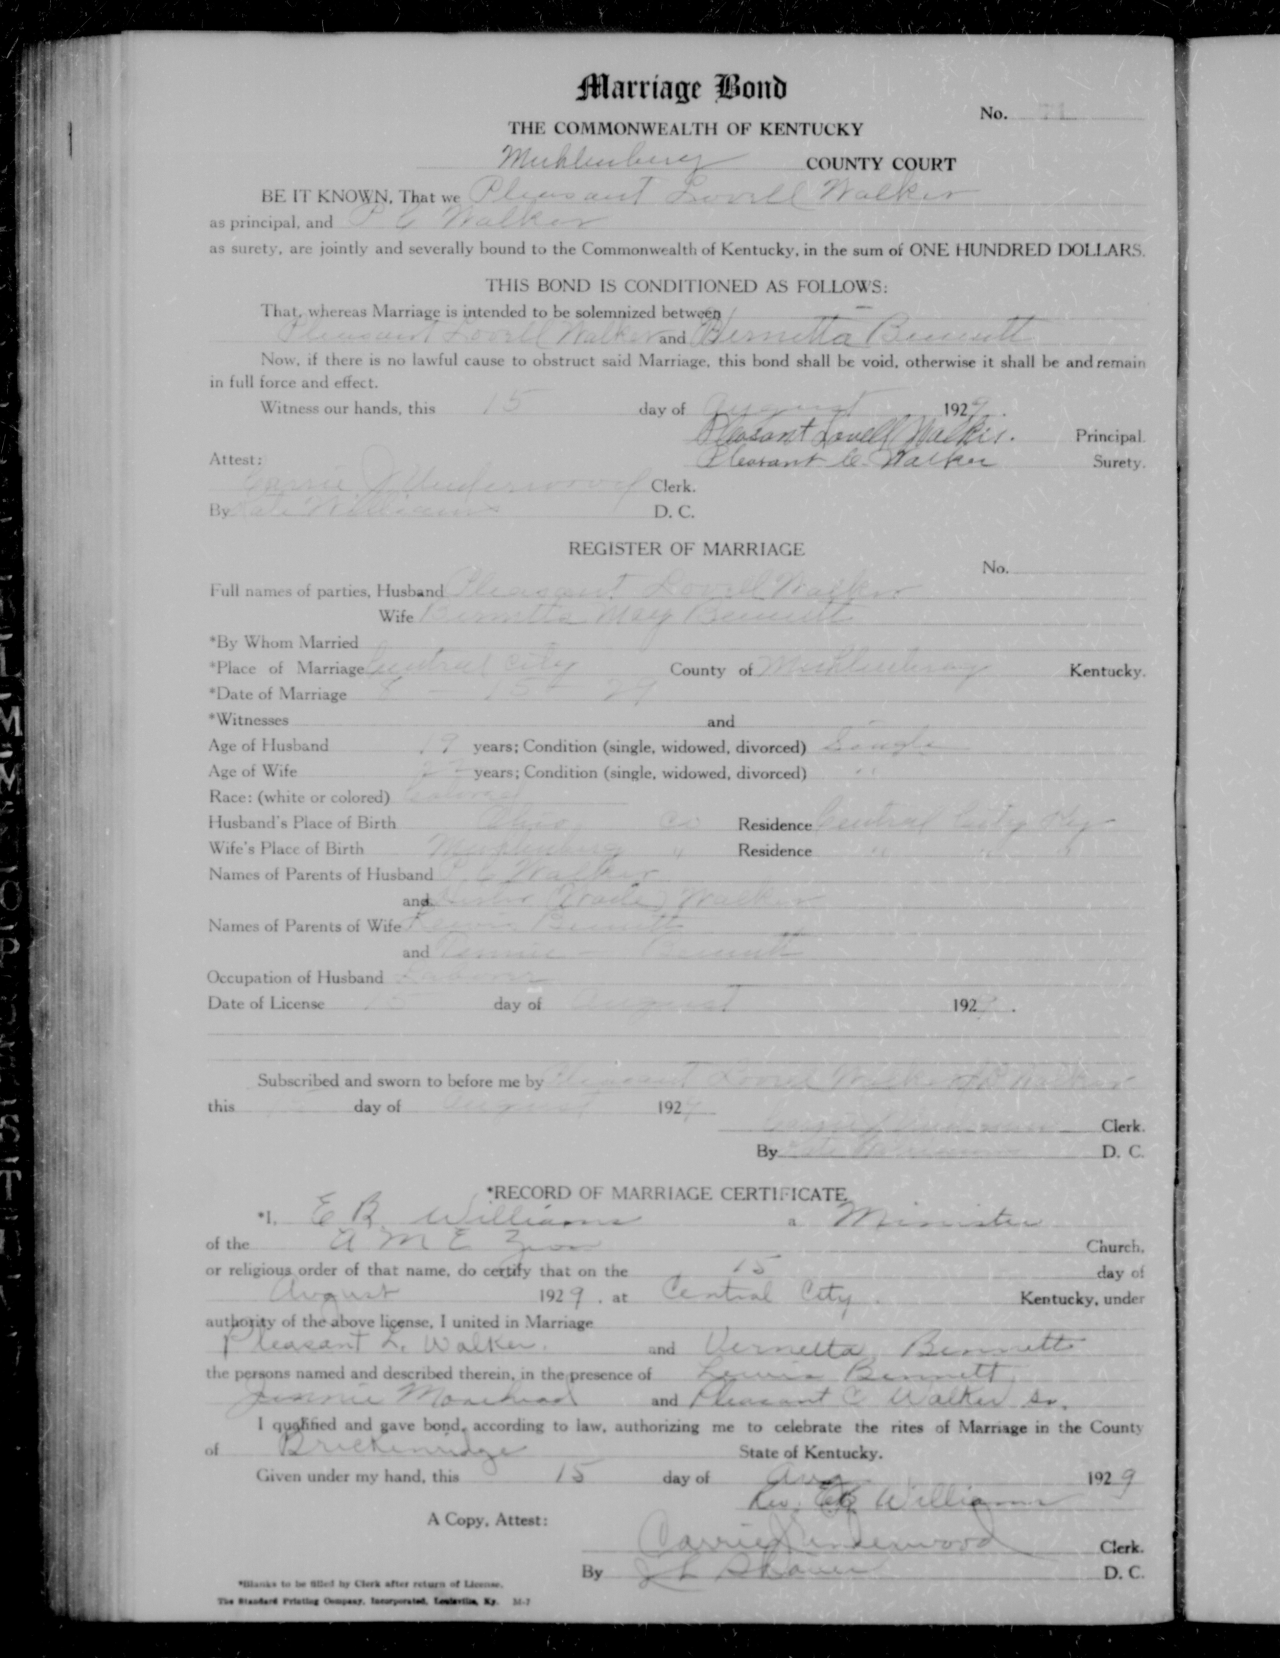 Marriage Bond
No. 71
THE COMMONWEALTH OF KENTUCKY
Muhlenberg COUNTY COURT
BE IT KNOWN, That we Pleasant Lovell Walker
as principal, and P C Walker
as surety, are jointly and severally bound to the Commonwealth of Kentucky, in the sum of ONE HUNDRED DOLLARS.
THIS BOND IS CONDITIONED AS FOLLOWS:
That, whereas Marriage is intended to be solemnized between
Pleasant Lovell Walker and Bernetta Bennett
Now, if there is no lawful cause to obstruct said Marriage, this bond shall be void, otherwise it shall be and remain
in full force and effect.
Witness our hands, this 15 day of August 1929.
Pleasant Lovell Walker. Principal.
Attest: Pleasant C. Walker Surety.
Carrie J Underwood Clerk.
By Kate Williams D. C.
REGISTER OF MARRIAGE
No.
Full names of parties, Husband Pleasant Lovell Walker
Wife Bernetta May Bennett
*By Whom Married
*Place of Marriage Central City County of Muhlenberg Kentucky.
*Date of Marriage 8 - 15 - 29
*Witnesses and
Age of Husband 19 years; Condition (single, widowed, divorced) Single
Age of Wife years; Condition (single, widowed, divorced) "
Race: (white or colored) Colored
Husband's Place of Birth Ohio Co Residence Central City Ky
Wife's Place of Birth Muhlenberg " Residence " " "
Names of Parents of Husband P C Walker
and Walker
Names of Parents of Wife Lewis Bennett
and Bennett
Occupation of Husband Laborer
Date of License 15 day of August 1929.
Subscribed and sworn to before me by Pleasant Lovell Walker P C Walker
this 15 day of August 1929
Carrie J Underwood Clerk.
By Kate Williams D. C.
*RECORD OF MARRIAGE CERTIFICATE
*I, E B. Williams a Minister
of the A M E Zion Church,
or religious order of that name, do certify that on the 15 day of
August 1929, at Central City. Kentucky, under
authority of the above license, I united in Marriage
Pleasant L. Walker. and Vernetta Bennett
the persons named and described therein, in the presence of Lewis Bennett
Jennie Morehead and Pleasant C Walker Sr.
I qualified and gave bond, according to law, authorizing me to celebrate the rites of Marriage in the County
of Breckenridge State of Kentucky.
Given under my hand, this 15 day of Aug 1929
Rev. E B Williams
A Copy, Attest:
Carrie J Underwood Clerk.
By J L Shaver D. C.
*Blanks to be filled by Clerk after return of License.
The Standard Printing Company, Incorporated, Louisville, Ky. M-7